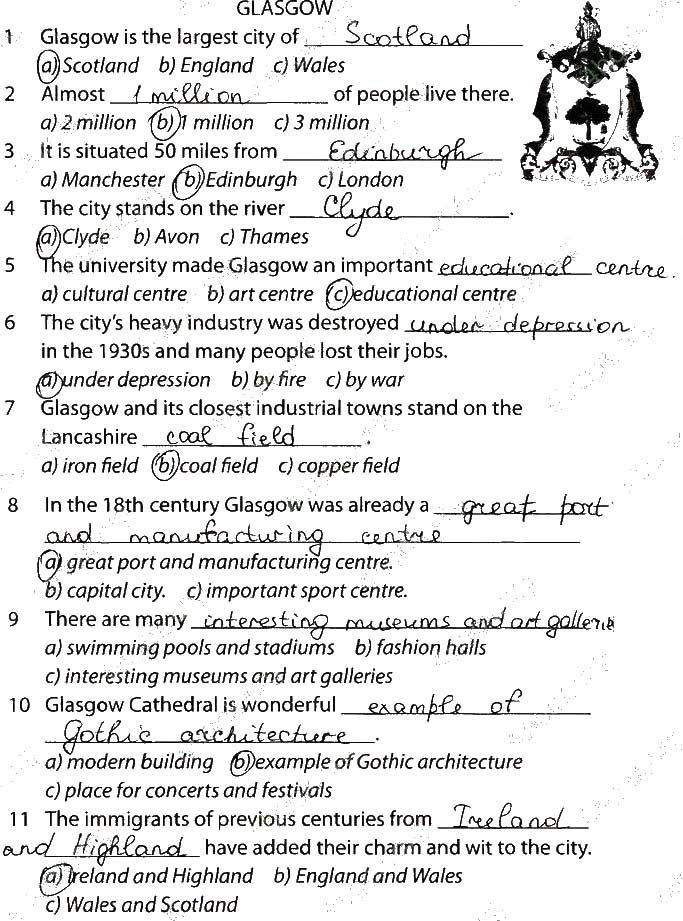 GLASGOW
1 Glasgow is the largest city of Scotland
a) Scotland b) England c) Wales
2 Almost 1 million of people live there.
a) 2 million b) 1 million c) 3 million
3 It is situated 50 miles from Edinburgh
a) Manchester b) Edinburgh c) London
4 The city stands on the river Clyde.
a) Clyde b) Avon c) Thames
5 The university made Glasgow an important educational centre.
a) cultural centre b) art centre c) educational centre
6 The city's heavy industry was destroyed under depression
in the 1930s and many people lost their jobs.
a) under depression b) by fire c) by war
7 Glasgow and its closest industrial towns stand on the
Lancashire coal field.
a) iron field b) coal field c) copper field
8 In the 18th century Glasgow was already a great port
and manufacturing centre
a) great port and manufacturing centre.
b) capital city. c) important sport centre.
9 There are many interesting museums and art galleries
a) swimming pools and stadiums b) fashion halls
c) interesting museums and art galleries
10 Glasgow Cathedral is wonderful example of
Gothic architecture.
a) modern building b) example of Gothic architecture
c) place for concerts and festivals
11 The immigrants of previous centuries from Ireland
and Highland have added their charm and wit to the city.
a) Ireland and Highland b) England and Wales
c) Wales and Scotland